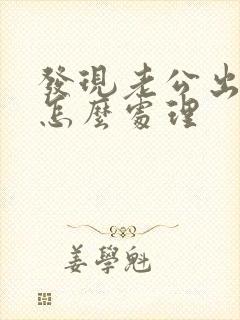 發現老公出
怎麼處理
姜學魁